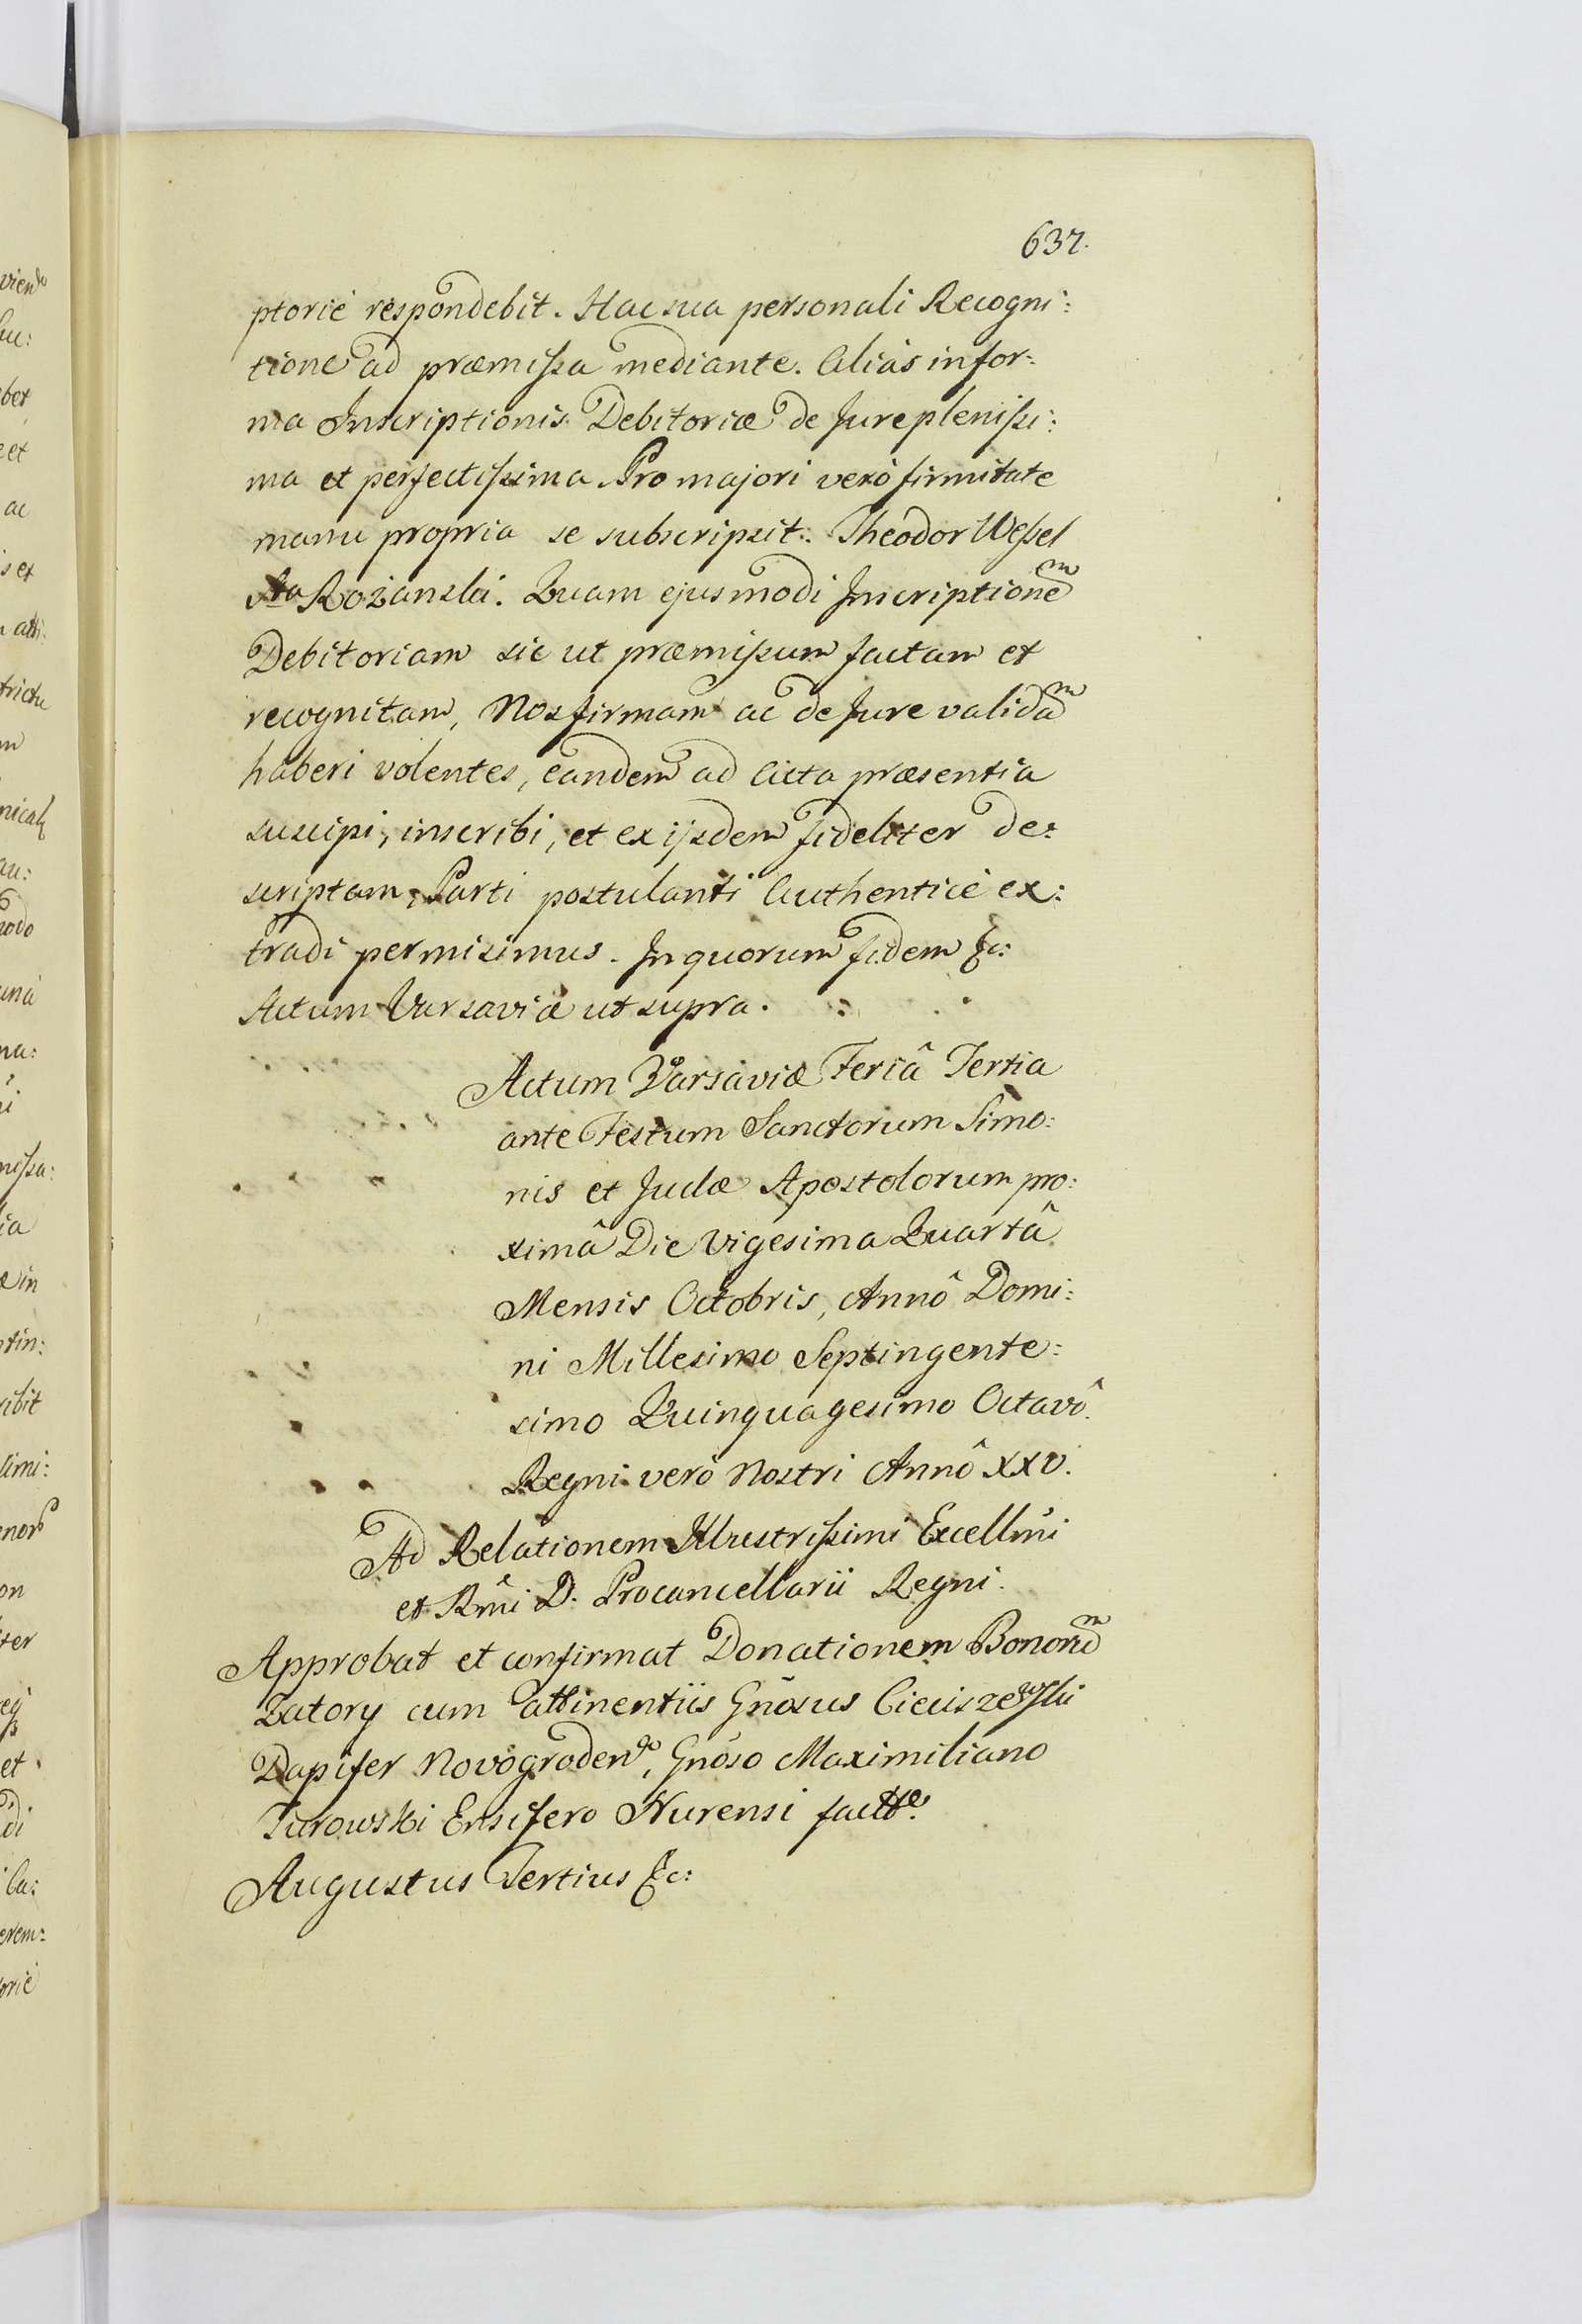 637.
ptorié respondebit. Hac sua personali Recogni:
tione ad præmissa mediante. Aliàs in for:
ma Inscriptionis Debitoriæ de Jure plenissi:
ma et perfectissima. Pro majori verò firmitate
manu propria se subscripsit. Theodor Wessel
Sta Rożanski. Quam ejusmodi Inscriptionem
Debitoriam sic ut præmissum factam et
recognitam, Nos firmam ac de Jure validam
haberi volentes, eandem ad Acta præsentia
suscipi, inscribi, et ex ijsdem fideliter de:
scriptam, Parti postulanti Authenticè ex:
tradi permisimus. In quorum fidem &c:
Actum Varsaviæ ut supra.
Actum Varsaviæ Feriâ Tertia
ante Festum Sanctorum Simo:
nis et Judæ Apostolorum pro:
ximâ Die Vigesima Quartâ
Mensis Octobris, Annô Domi:
ni Millesimo Septingente:
simo Quinquagesimo Octavô.
Regni verò Nostri Annô XXV.
Ad Relationem Illustrissimi Excellmi
et Rmi D. Procancellarii Regni.
Approbat et confirmat Donationem Bonorum
Zatory cum attinentiis Gnosus Cieciszewski
Dapifer Novogroden, Gnoso Maximiliano
Turowski Ensifero Nurensi
Augustus Tertius &c: